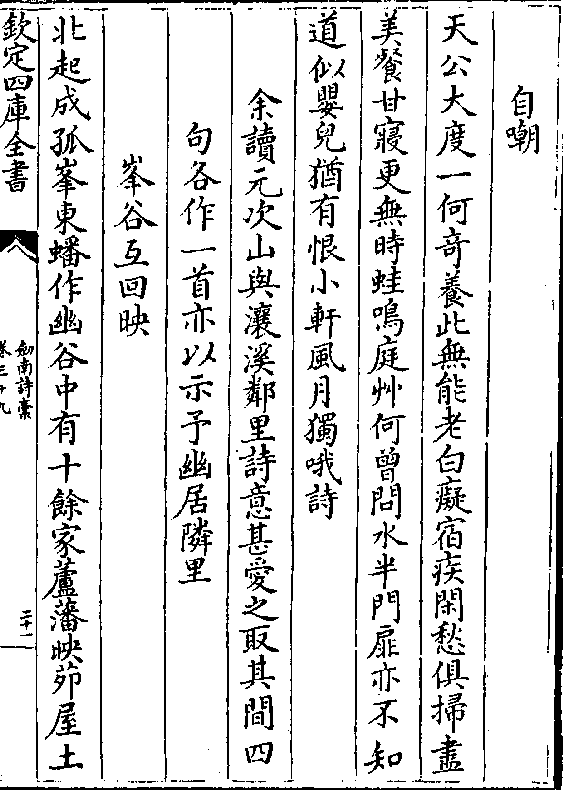 自嘲
天公大度一何竒養此無能老白癡宿疾閑愁俱掃盡
美餐甘寢更無時蛙鳴庭艸何曾問水半門扉亦不知
道似嬰兒猶有恨小軒風月獨哦詩
余讀元次山與瀼溪鄰里詩意甚愛之取其間四
句各作一首亦以示予幽居隣里
峯谷互回映
北起成孤峯東蟠作幽谷中有十餘家蘆藩映茆屋土
欽定四庫全書
劒南詩稾
卷三十九
二十一